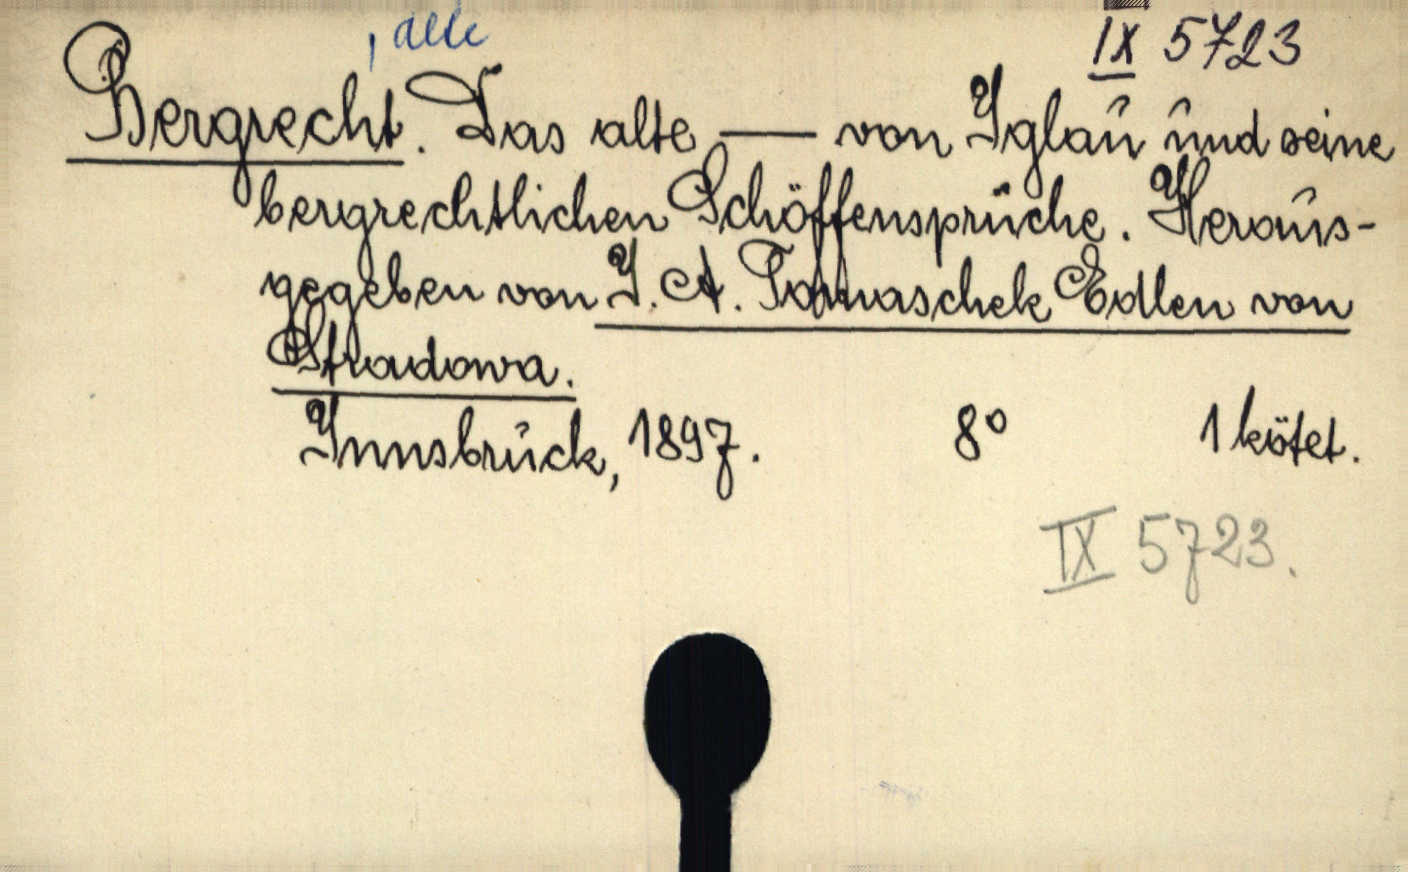 , alte
IX 5723
Bergrecht. Das alte — von Iglau und seine
bergrechtlichen Schöffensprüche. Heraus-
gegeben von J. A. Tomaschek Edlen von
Stradowa.
Innsbruck, 1897. 8° 1 kötet.
IX 5723.